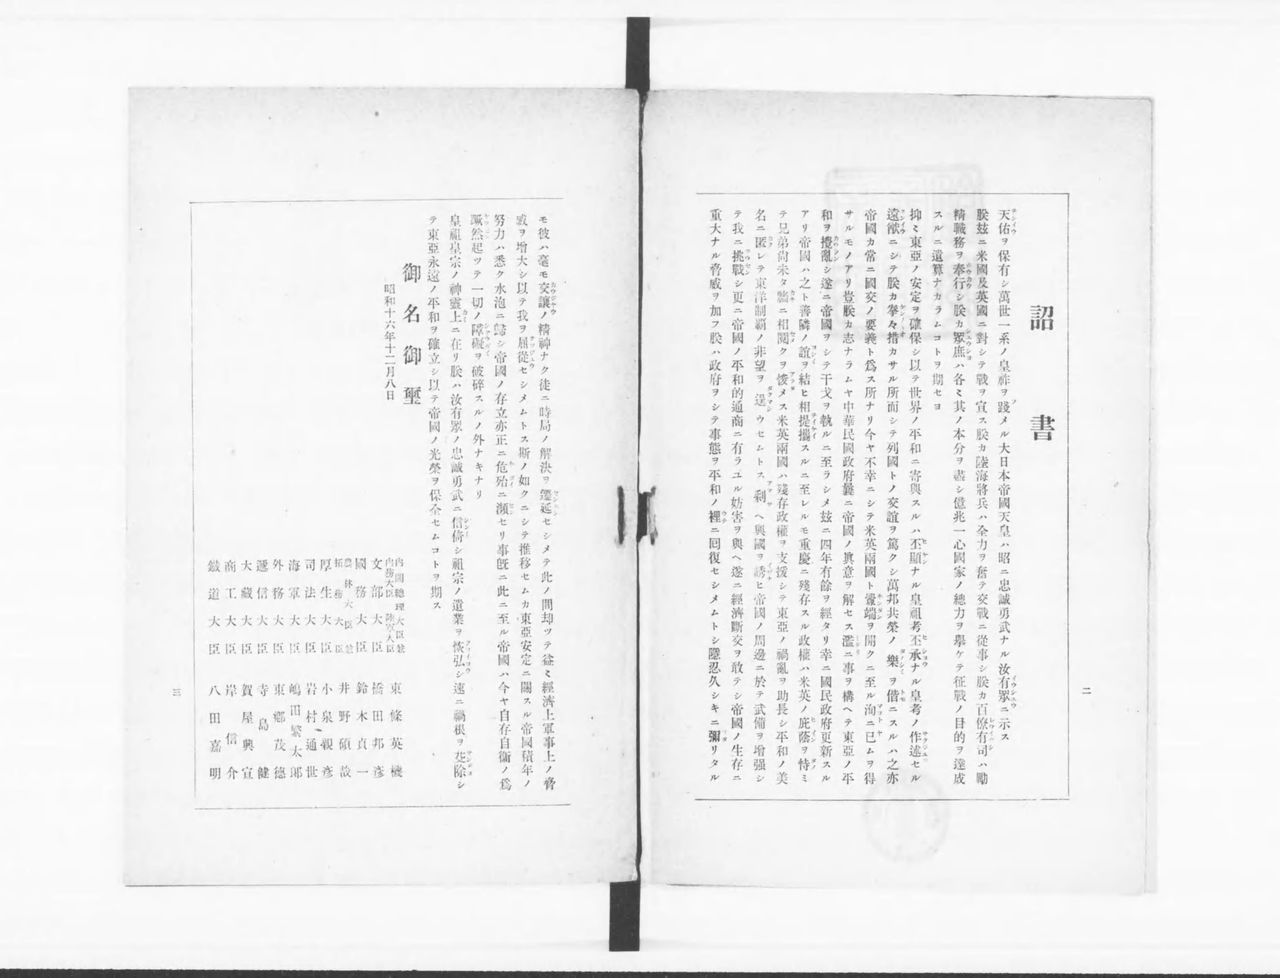 詔書
天佑ヲ保有シ萬世一系ノ皇祚ヲ踐メル大日本帝國天皇ハ昭ニ忠誠勇武ナル汝有眾ニ示ス
朕玆ニ米國及英國ニ對シテ戰ヲ宣ス朕カ陸海將兵ハ全力ヲ奮テ交戰ニ從事シ朕カ百僚有司ハ勵
精職務ヲ奉行シ朕カ眾庶ハ各〻其ノ本分ヲ盡シ億兆一心國家ノ總力ヲ擧ケテ征戰ノ目的ヲ達成
スルニ遺算ナカラムコトヲ期セヨ
抑〻東亞ノ安定ヲ確保シ以テ世界ノ平和ニ寄與スルハ丕顯ナル皇祖考丕承ナル皇考ノ作述セル
遠猷ニシテ朕カ拳々措カサル所而シテ列國トノ交誼ヲ篤クシ萬邦共榮ノ樂ヲ偕ニスルハ之亦
帝國カ常ニ國交ノ要義ト爲ス所ナリ今ヤ不幸ニシテ米英兩國ト釁端ヲ開クニ至ル洵ニ已ムヲ得
サルモノアリ豈朕カ志ナラムヤ中華民國政府曩ニ帝國ノ眞意ヲ解セス濫ニ事ヲ構ヘテ東亞ノ平
和ヲ攪亂シ遂ニ帝國ヲシテ干戈ヲ執ルニ至ラシメ玆ニ四年有餘ヲ經タリ幸ニ國民政府更新スル
アリ帝國ハ之ト善隣ノ誼ヲ結ヒ相提攜スルニ至レルモ重慶ニ殘存スル政權ハ米英ノ庇蔭ヲ恃ミ
テ兄弟尚未タ牆ニ相鬩クヲ悛メス米英兩國ハ殘存政權ヲ支援シテ東亞ノ禍亂ヲ助長シ平和ノ美
名ニ匿レテ東洋制覇ノ非望ヲ逞ウセムトス剩ヘ與國ヲ誘ヒ帝國ノ周邊ニ於テ武備ヲ增强シ
テ我ニ挑戰シ更ニ帝國ノ平和的通商ニ有ラユル妨害ヲ與ヘ遂ニ經濟斷交ヲ敢テシ帝國ノ生存ニ
重大ナル脅威ヲ加フ朕ハ政府ヲシテ事態ヲ平和ノ裡ニ囘復セシメムトシ隱忍久シキニ彌リタル
二
モ彼ハ毫モ交讓ノ精神ナク徒ニ時局ノ解決ヲ遷延セシメテ此ノ間却ツテ益〻經濟上軍事上ノ脅
威ヲ增大シ以テ我ヲ屈從セシメムトス斯ノ如クニシテ推移セムカ東亞安定ニ關スル帝國積年ノ
努力ハ悉ク水泡ニ歸シ帝國ノ存立亦正ニ危殆ニ瀕セリ事既ニ此ニ至ル帝國ハ今ヤ自存自衞ノ爲
蹶然起ツテ一切ノ障礙ヲ破碎スルノ外ナキナリ
皇祖皇宗ノ神靈上ニ在リ朕ハ汝有眾ノ忠誠勇武ニ信倚シ祖宗ノ遺業ヲ恢弘シ速ニ禍根ヲ芟除シ
テ東亞永遠ノ平和ヲ確立シ以テ帝國ノ光榮ヲ保全セムコトヲ期ス
御名御璽
昭和十六年十二月八日
內閣總理大臣兼內務大臣陸軍大臣 東條英機
文部大臣 橋田邦彥
國務大臣 鈴木貞一
農林大臣兼拓務大臣 井野碩哉
厚生大臣 小泉親彥
司法大臣 岩村通世
海軍大臣 嶋田繁太郎
外務大臣 東鄕茂德
遞信大臣 寺島健
大藏大臣 賀屋興宣
商工大臣 岸信介
鐵道大臣 八田嘉明
三